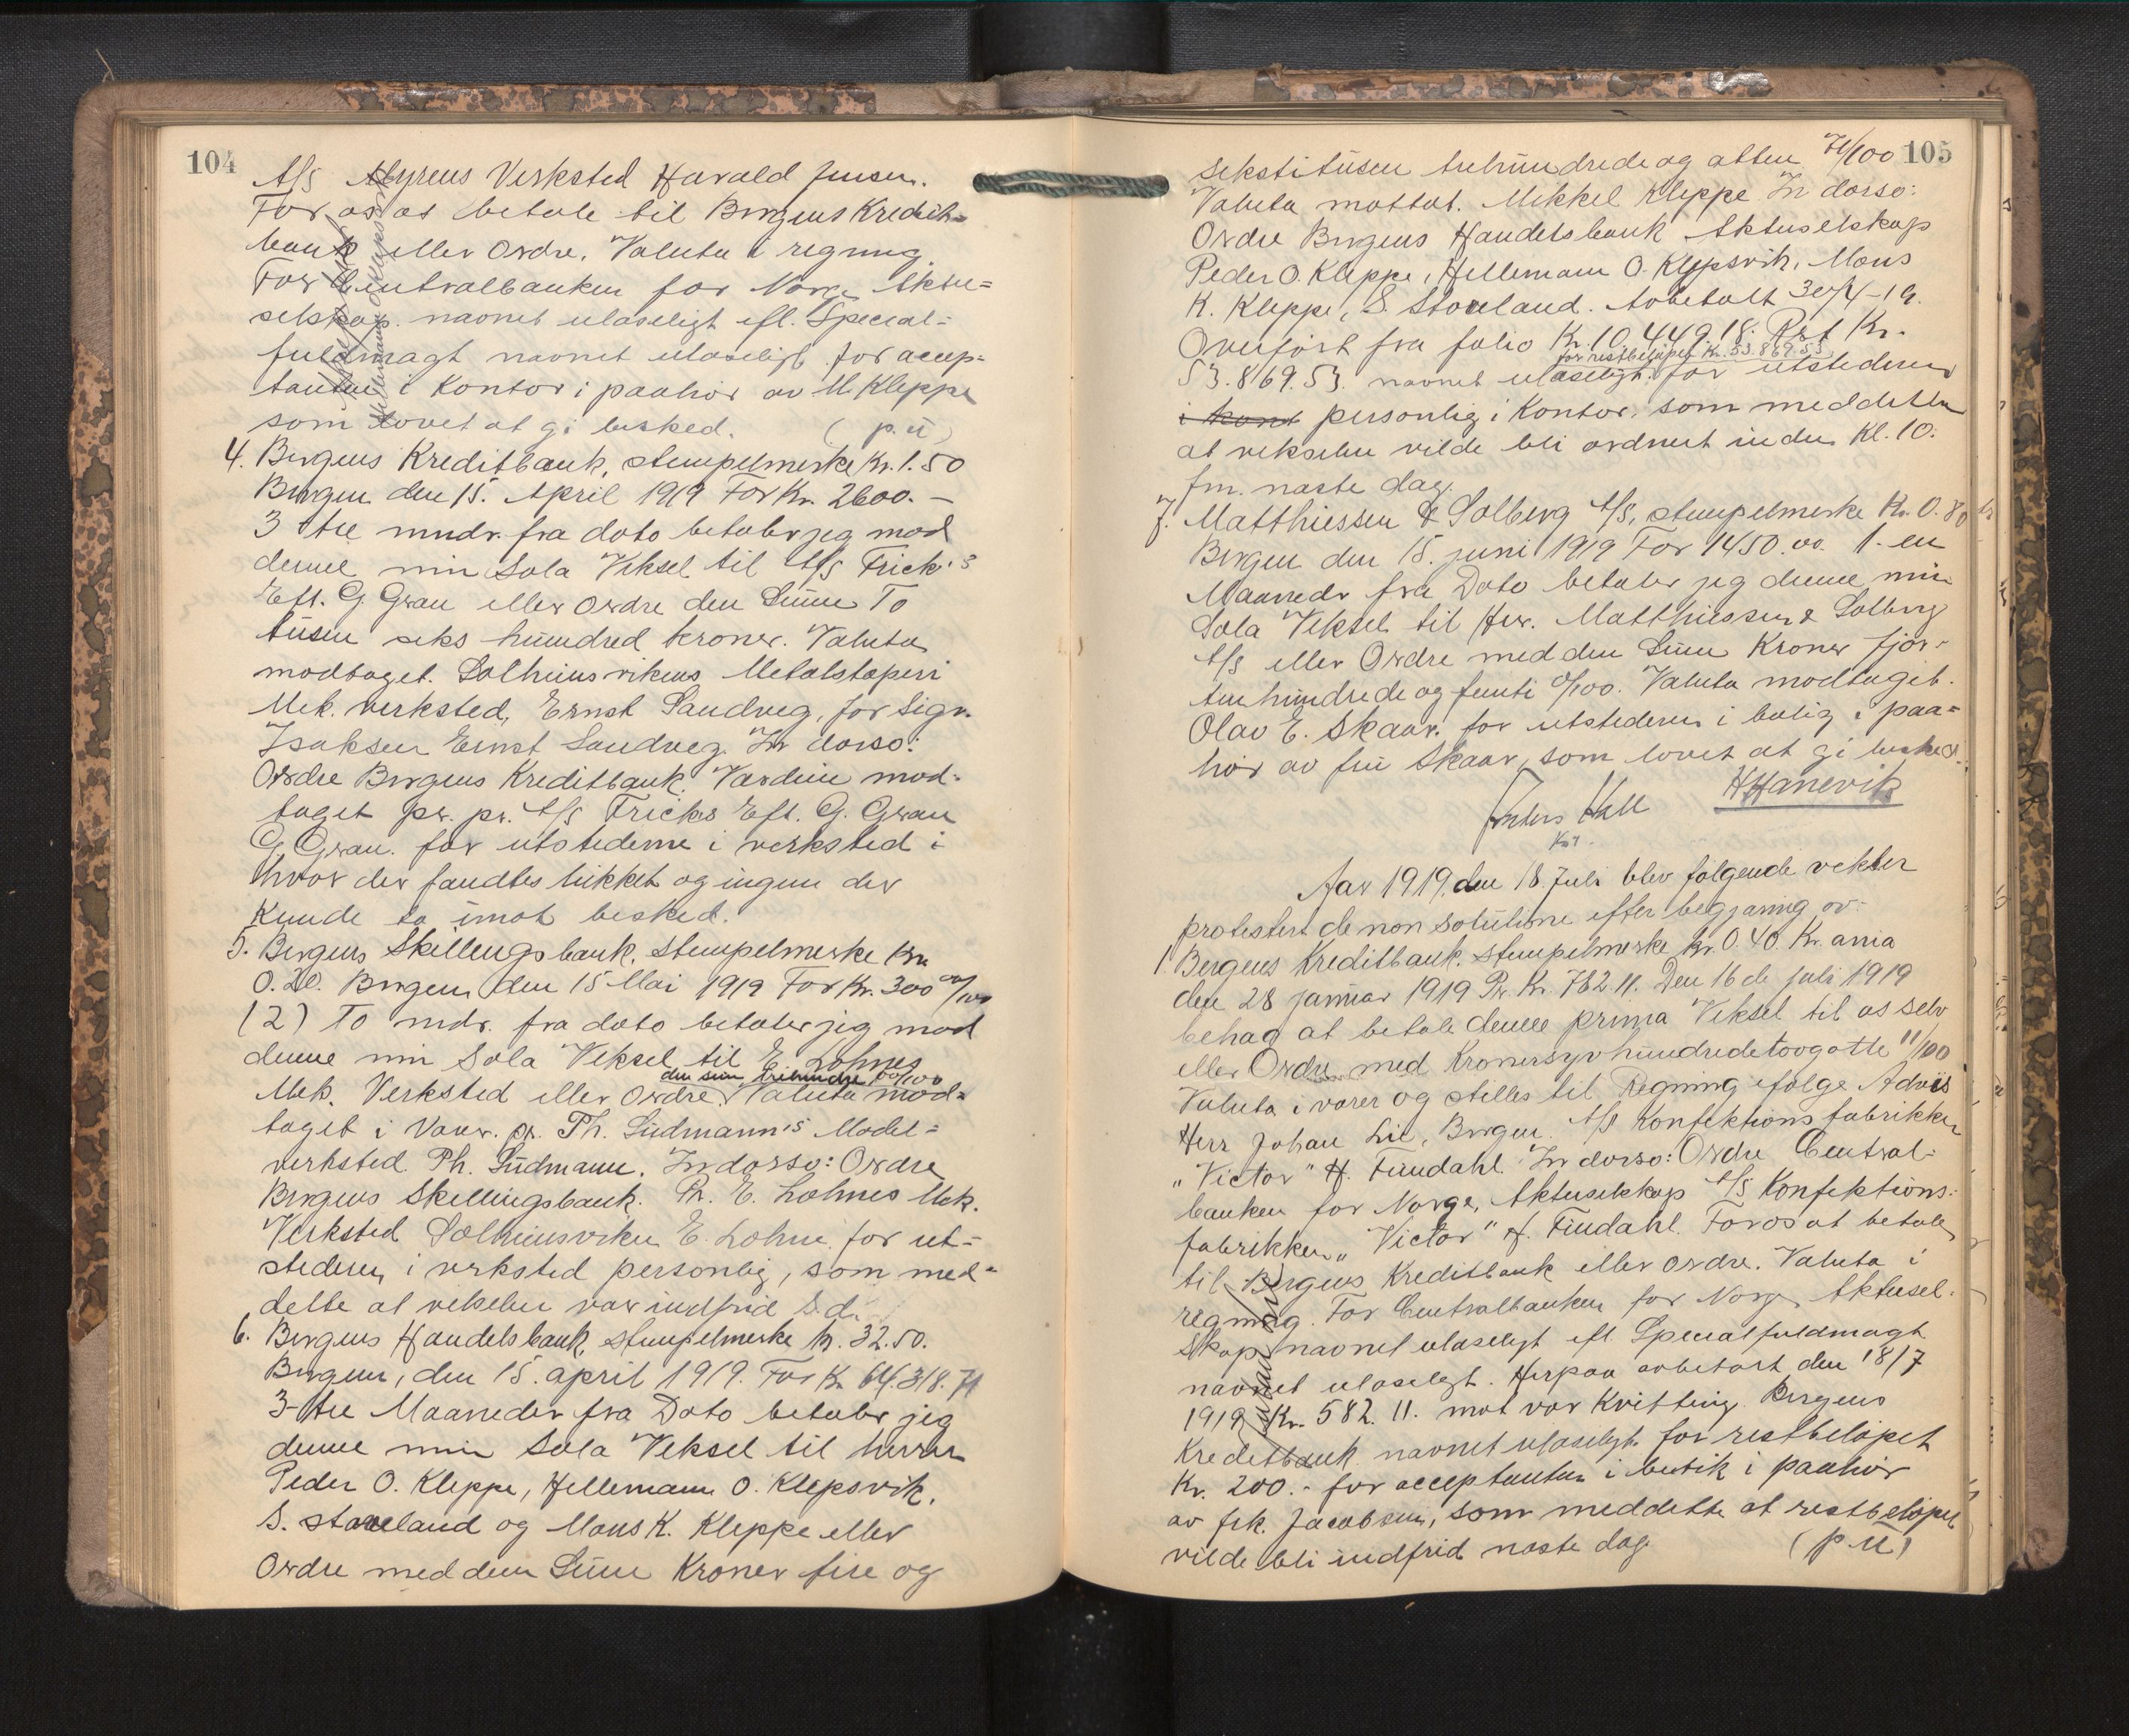 104
A/S Myrens Verksted Harald Jensen.
For os at betale til Bergens Kredit-
bank eller Ordre. Valuta i regning
For Centralbanken for Norge Aktie-
selskap. navnet ulæseligt efl. Special-
fuldmagt navnet ulæseligt for accep-
tanten i Kontor i paahør av M. Kleppe
som lovet at gi besked. (p.u)
4. Bergens Kreditbank, stempelmerke Kr. 1.50
Bergen den 15. April 1919 For Kr. 2600.—
3 tre mndr. fra dato betaler jeg mod
denne min Sola Veksel til A/S Frick's
Eft. G. Grau eller Ordre den Sum To
tusen seks hundred kroner. Valuta
modtaget. Solheimsvikens Metalstøperi
Mek. verksted, Ernst Sandveg, for Sigv.
Isaksen Ernst Sandveg. In dorso:
Ordre Bergens Kreditbank. Værdien mod-
taget pr. pr. A/S Fricks Eft. G. Grau
G. Grau. for utstederne i verksted i
hvor der fandtes lukket og ingen der
kunde ta imot besked.
5. Bergens Skillingsbank. Stempelmerke Kr.
0.20. Bergen den 15 Mai 1919 For Kr. 300 00/100
(2) To mdr. fra dato betaler jeg mod
denne min Sola Veksel til E. Lohnes
den sum trehundre 00/100
Mek. Verksted eller Ordre. Valuta mod-
taget i Varer. pr. Ph. Südmann's Model-
verksted Ph. Südmann. In dorso: Ordre
Bergens Skillingsbank. Pr. E. Lohnes Mek.
Verksted Solheimsviken E. Lohne for ut-
stederen i verksted personlig, som med-
delte at vekselen var indfrid s.d.
6. Bergens Handelsbank, stempelmerke kr. 32.50.
Bergen, den 15. april 1919. For Kr. 64.318.71
3-tre Maaneder fra Dato betaler jeg
denne min Sola Veksel til herrer
Peder O. Kleppe, Hellemann O. Klepsvik,
S. Staveland og Mons K. Kleppe eller
Ordre med den Sum Kroner fire og
105
sekstitusen trehundrede og atten 71/100
Valuta mottat. Mikkel Kleppe In dorso:
Ordre Bergens Handelsbank Aktieselskap
Peder O. Kleppe, Hellemann O. Klepsvik, Mons
K. Kleppe, S. Staveland. Avbetalt 30/4-19.
Overført fra folio Kr. 10.449.18. Rest Kr.
for restbeløpet Kr. 53.869.53
53.869.53. navnet ulæseligt. for utstederen
i kont personlig i Kontor. som meddelte
at vekselen vilde bli ordnert inden Kl. 10.
fm. næste dag.
7. Matthiessen & Solberg A/S, stempelmerke Kr. 0.80
Bergen den 15. juni 1919 For 1450.00. 1-en
Maaneder fra Dato betaler jeg denne min
Sola Veksel til Herr. Matthiessen & Solberg
A/S eller Ordre med den Sum Kroner fjor-
tenhundrede og femti 0/100. Valuta modtaget.
Olav E. Skaar. for utstederen i bolig i paa-
hør av fru Skaar, som lovet at gi besked.
HHanevik
Aar 1919, den 18. Juli blev følgende veksler
protestert de non solutione efter begjæring av:
1. Bergens Kreditbank. stempelmerke kr. 0.40. Kr.ania
den 28 januar 1919 Pr. Kr. 782.11. Den 16de juli 1919
behag at betale denne prima Veksel til os selv
eller Ordre med Kroner syvhundredetoogotte 11/100
Valuta i varer og stilles til Regning ifølge Advis
Herr Johan Lie, Bergen. A/S Konfektionsfabrikken
„Victor" H. Finndahl In dorso: Ordre Central-
banken for Norge, Aktieselskap A/S Konfektions-
fabrikken „Victor" H. Finndahl. For os at betale
til Bergens Kreditbank eller ordre. Valuta i
regning. For Centralbanken for Norge Aktiesel-
skap navnet ulæseligt efl. Specialfuldmagt
navnet ulæseligt. Herpaa avbetalt den 18/7
1919 Kr. 582.11. mot vor Kvittering. Bergens
Kreditbank navnet ulæseligt. for restbeløpet
Kr. 200.- for acceptanten i butik i paahør
av frk. Jacobsen, som meddelte at restbeløpet
vilde bli indfrid næste dag (p.u)